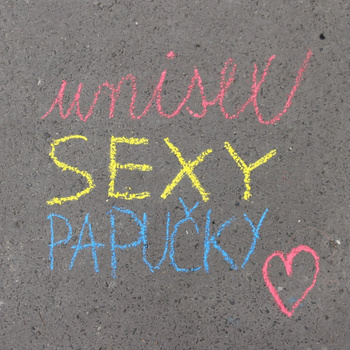 unisex
SEXY
PAPUČKY